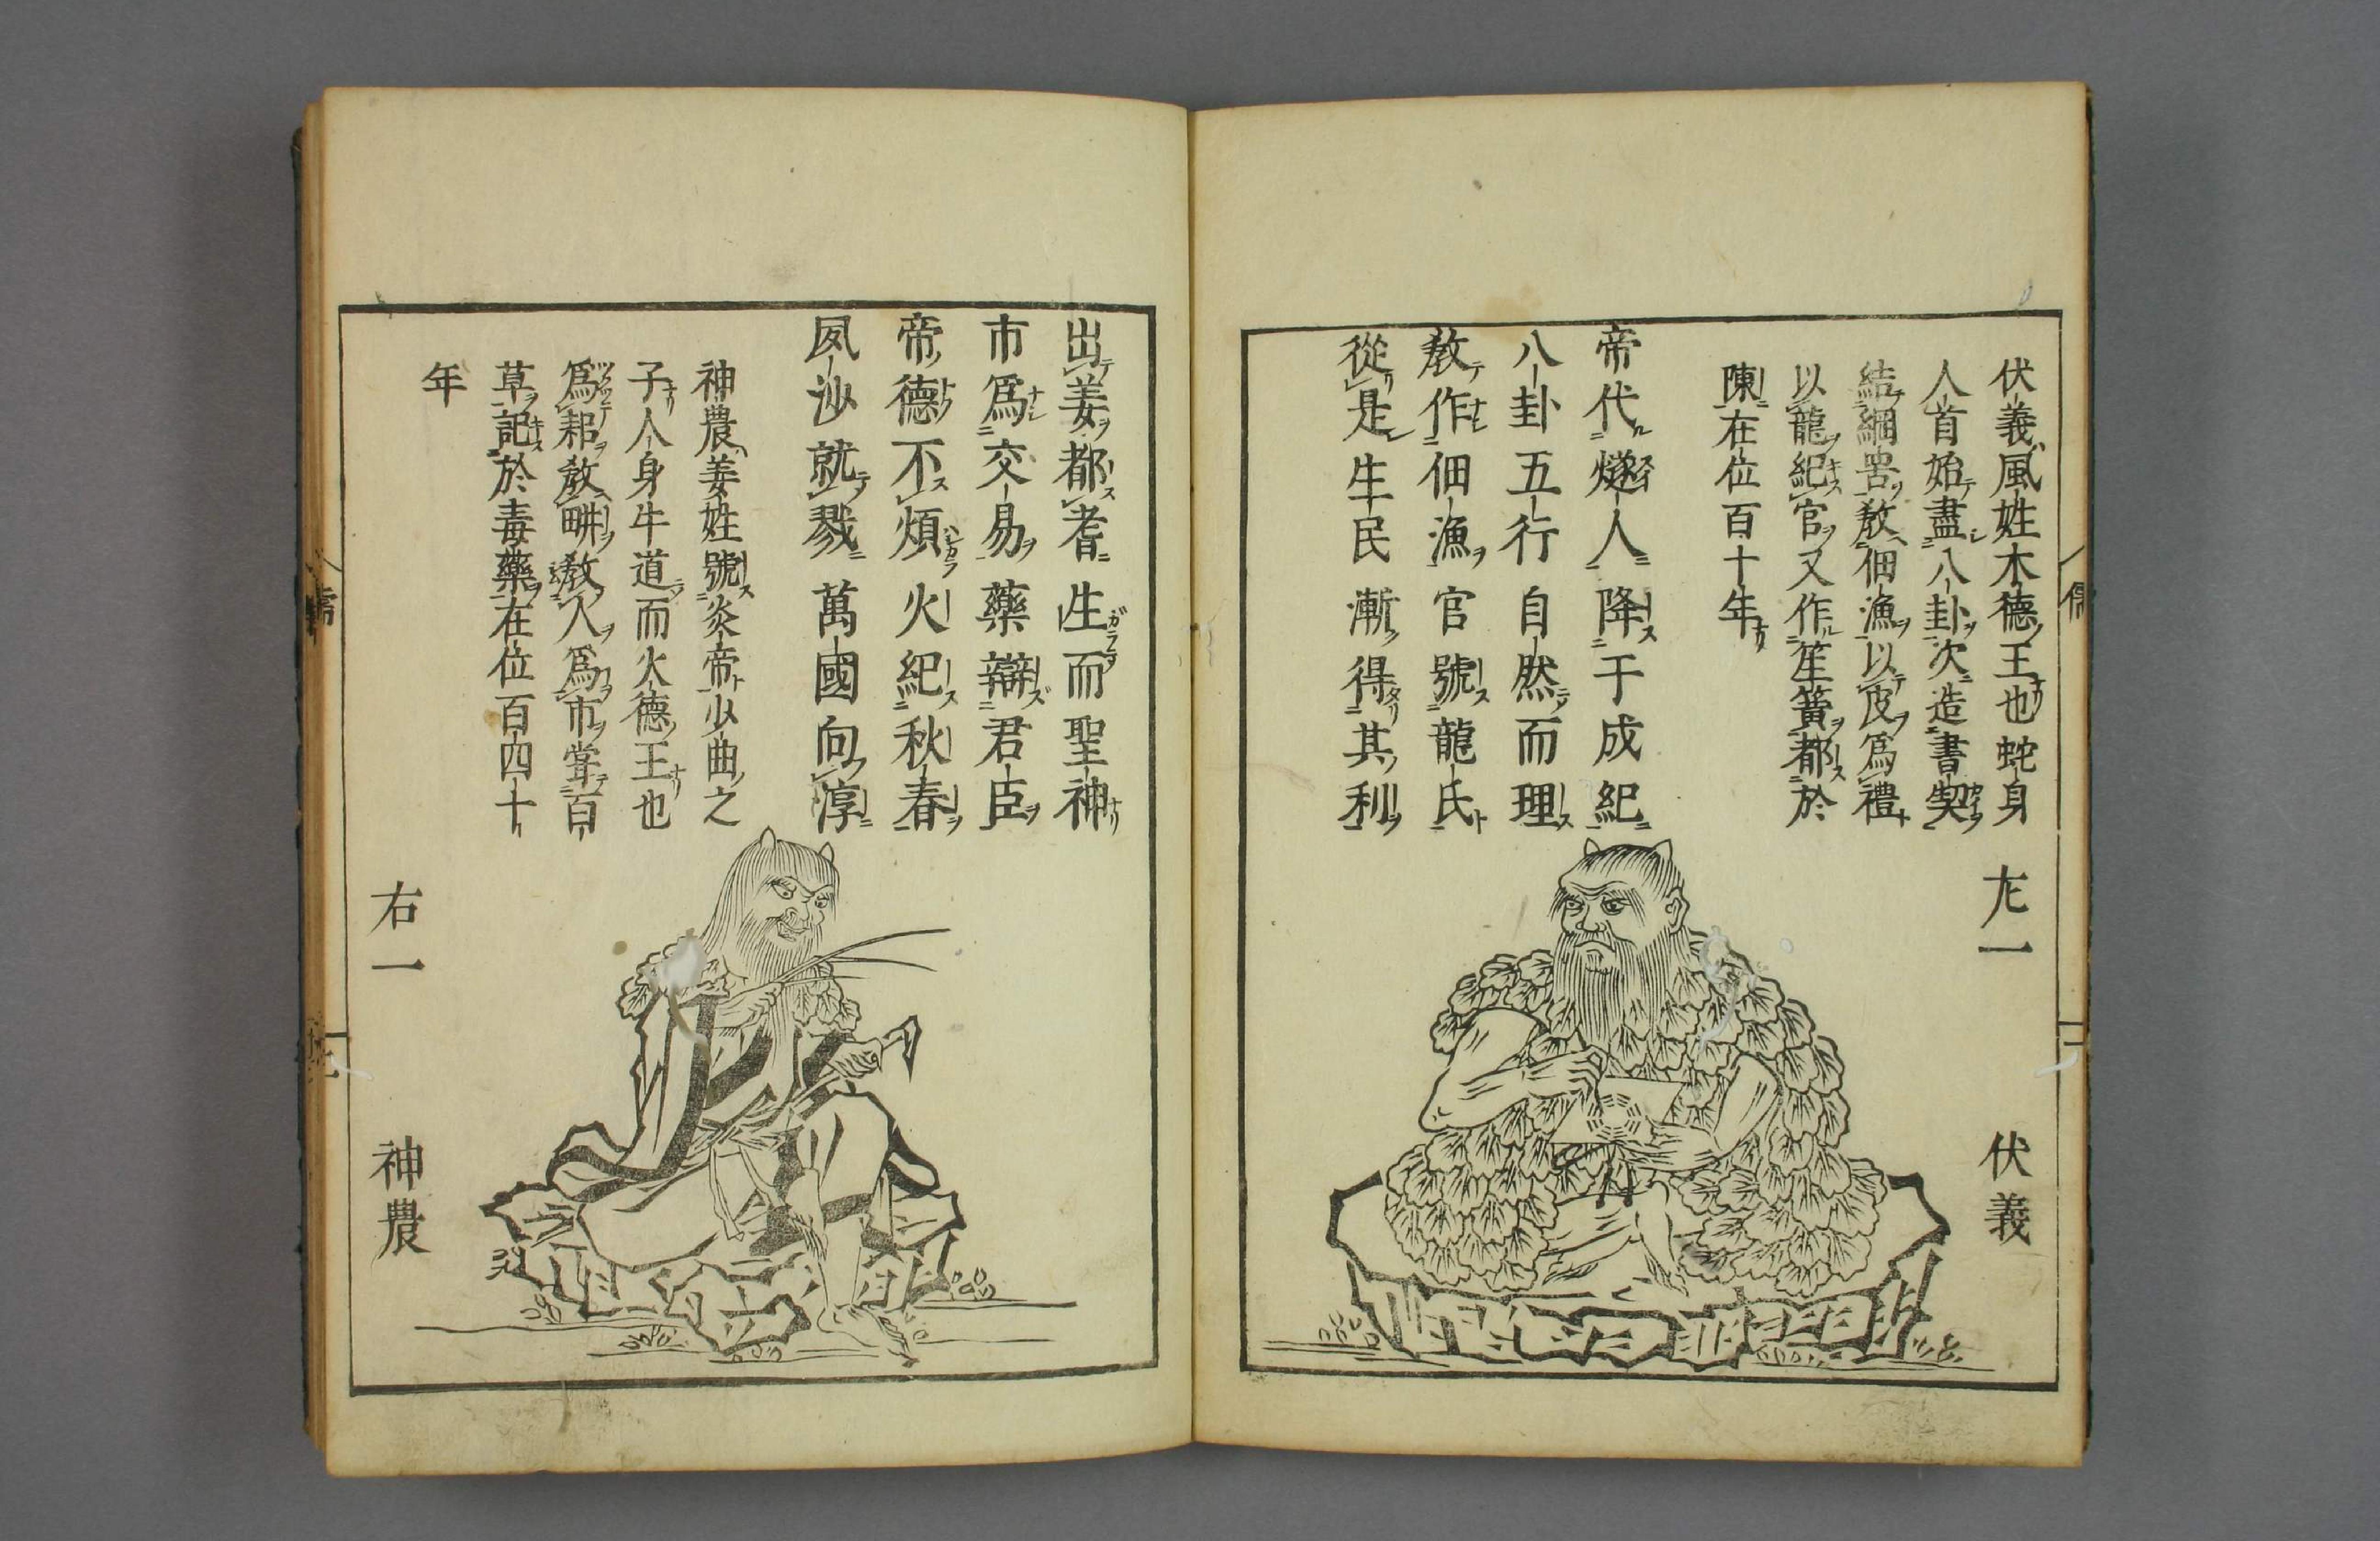 伏義風姓木德王也蛇身
人首始畫八卦次造書契
結網罟教佃漁以皮爲禮
以龍紀官又作笙簧都於
陳在位百十年
帝代燧人降于成紀
八卦五行自然而理
教作佃漁官號龍氏
從是生民漸得其利
左一
伏義
出姜都耆生而聖神
市爲交易藥辯君臣
帝德不煩火紀秋春
夙沙就戮萬國向淳
神農姜姓號炎帝少典之
子人身牛首而火德王也
爲耜教耕教人爲市甞百
草記於毒藥在位百四十
年
右一
神農